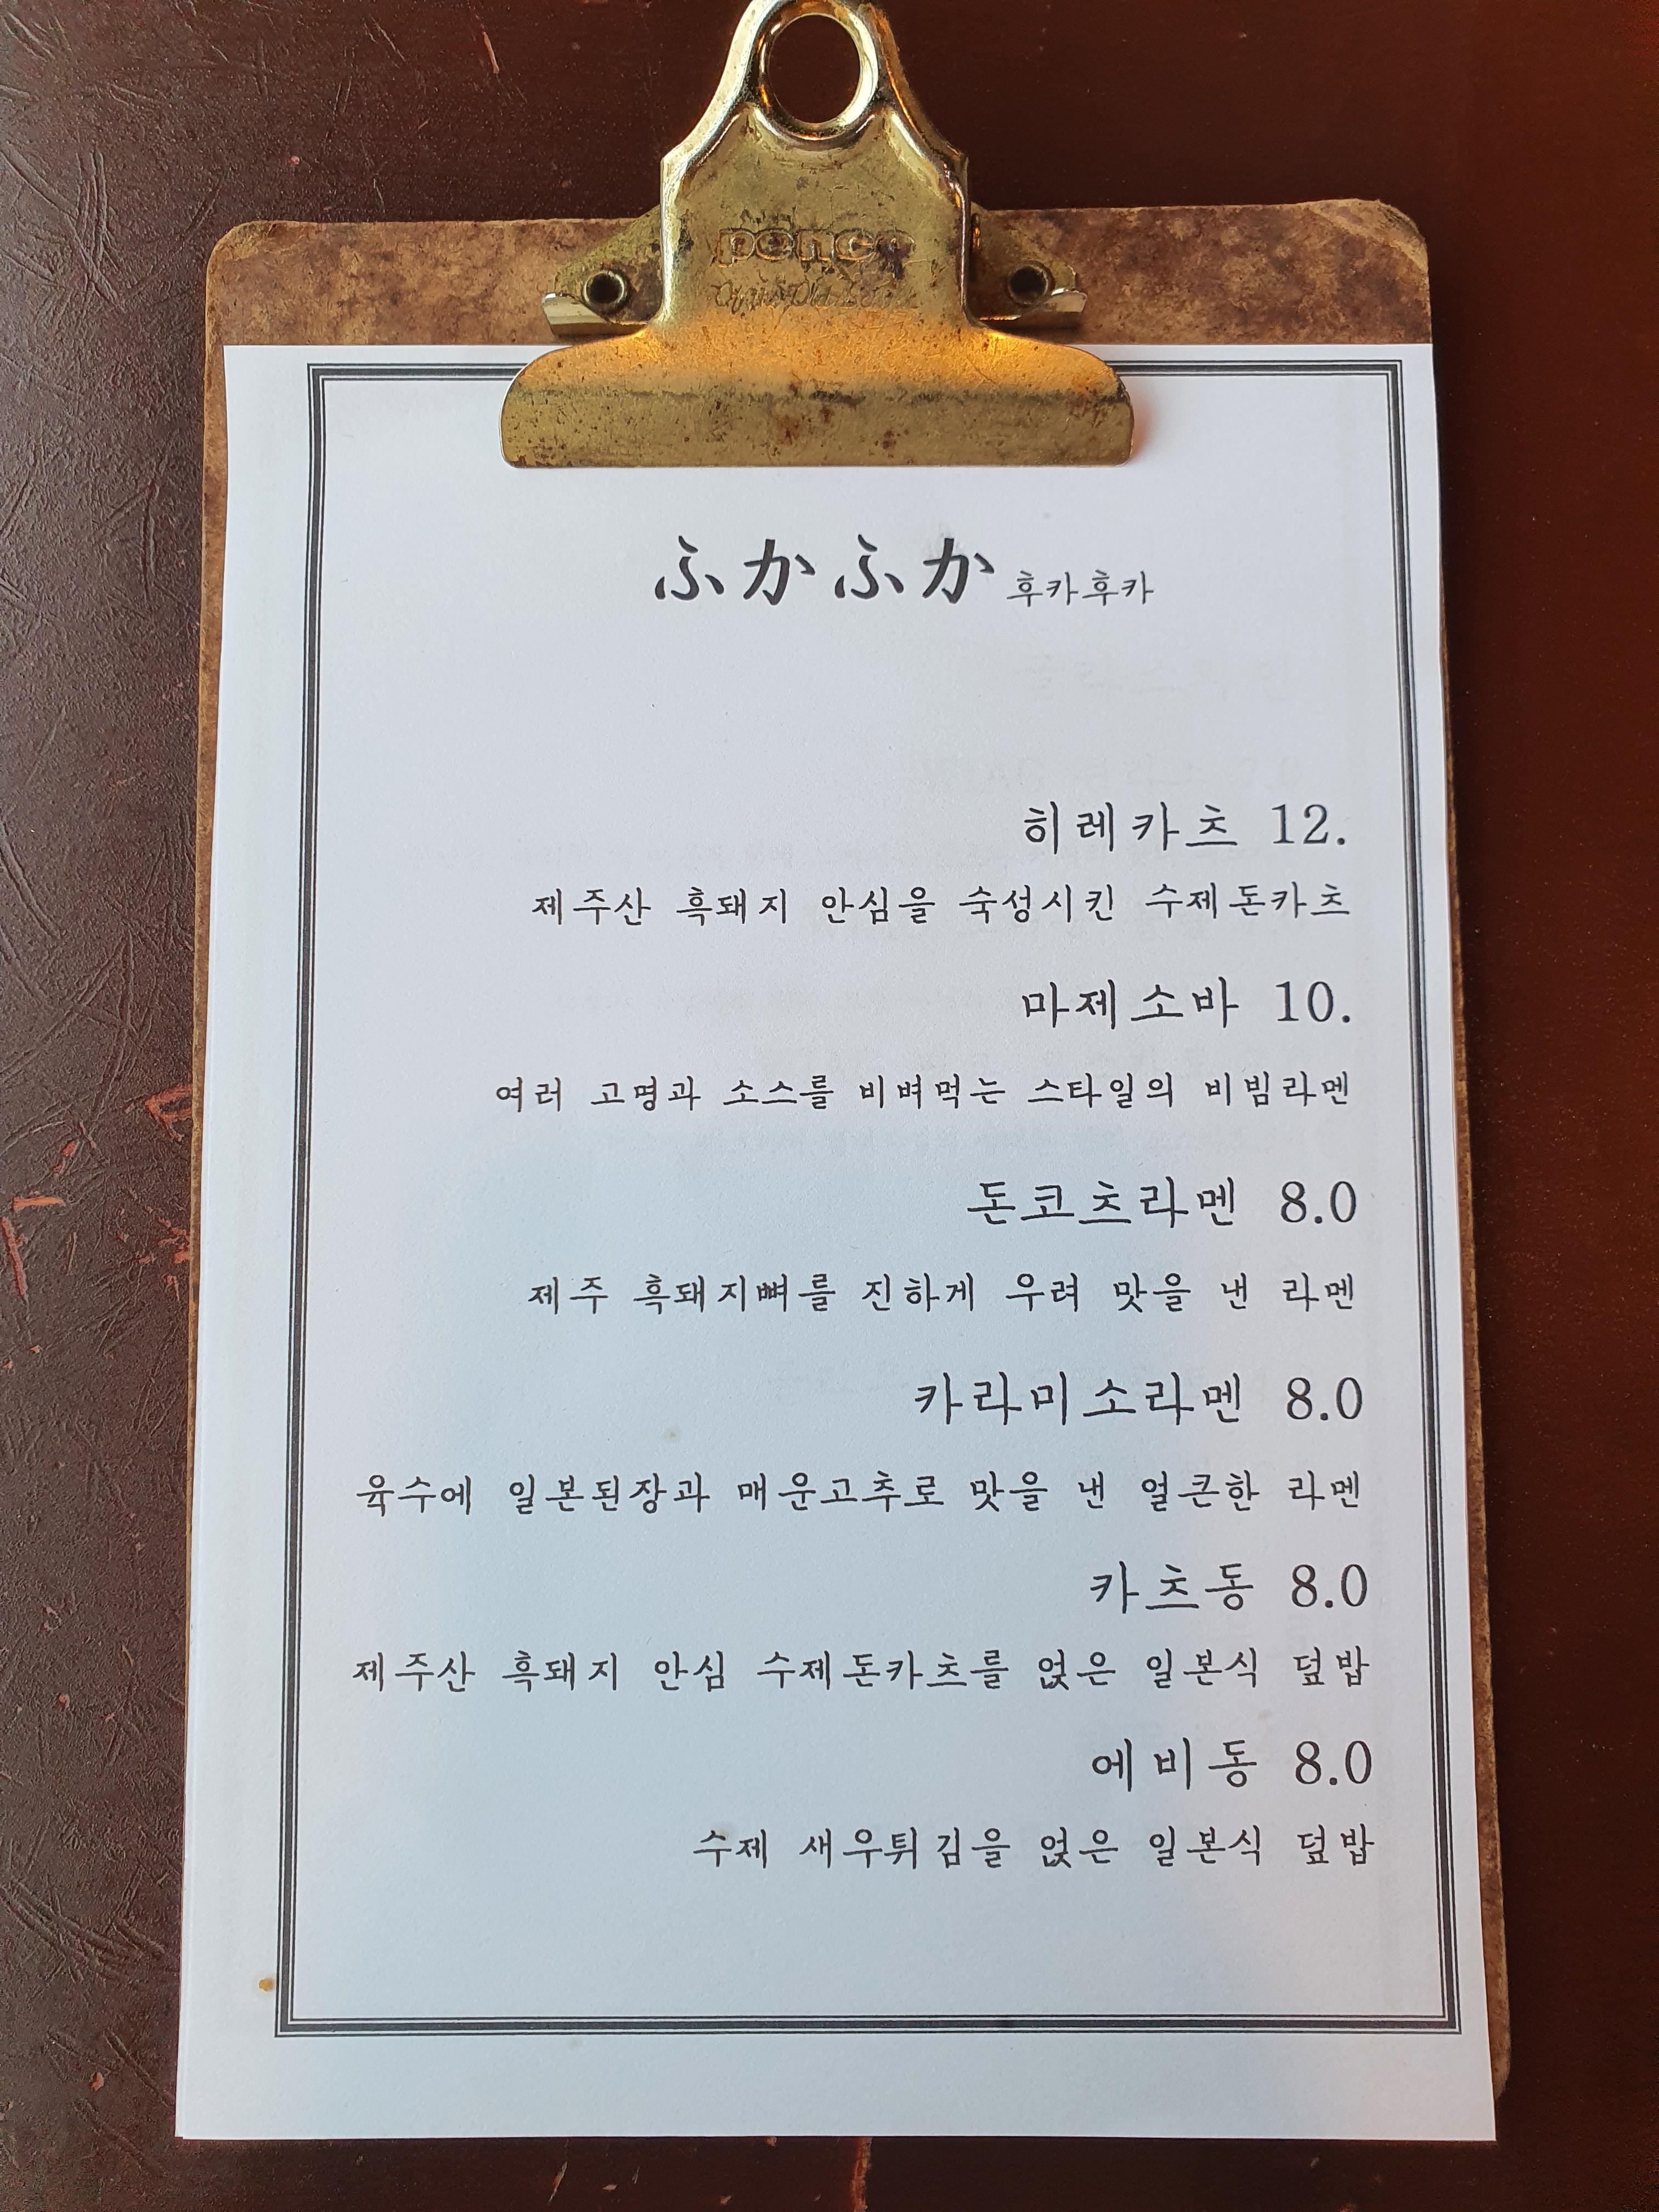 penco
ふかふか 후카후카
히레카츠 12.
제주산 흑돼지 안심을 숙성시킨 수제돈카츠
마제소바 10.
여러 고명과 소스를 비벼먹는 스타일의 비빔라멘
돈코츠라멘 8.0
제주 흑돼지뼈를 진하게 우려 맛을 낸 라멘
카라미소라멘 8.0
육수에 일본된장과 매운고추로 맛을 낸 얼큰한 라멘
카츠동 8.0
제주산 흑돼지 안심 수제돈카츠를 얹은 일본식 덮밥
에비동 8.0
수제 새우튀김을 얹은 일본식 덮밥